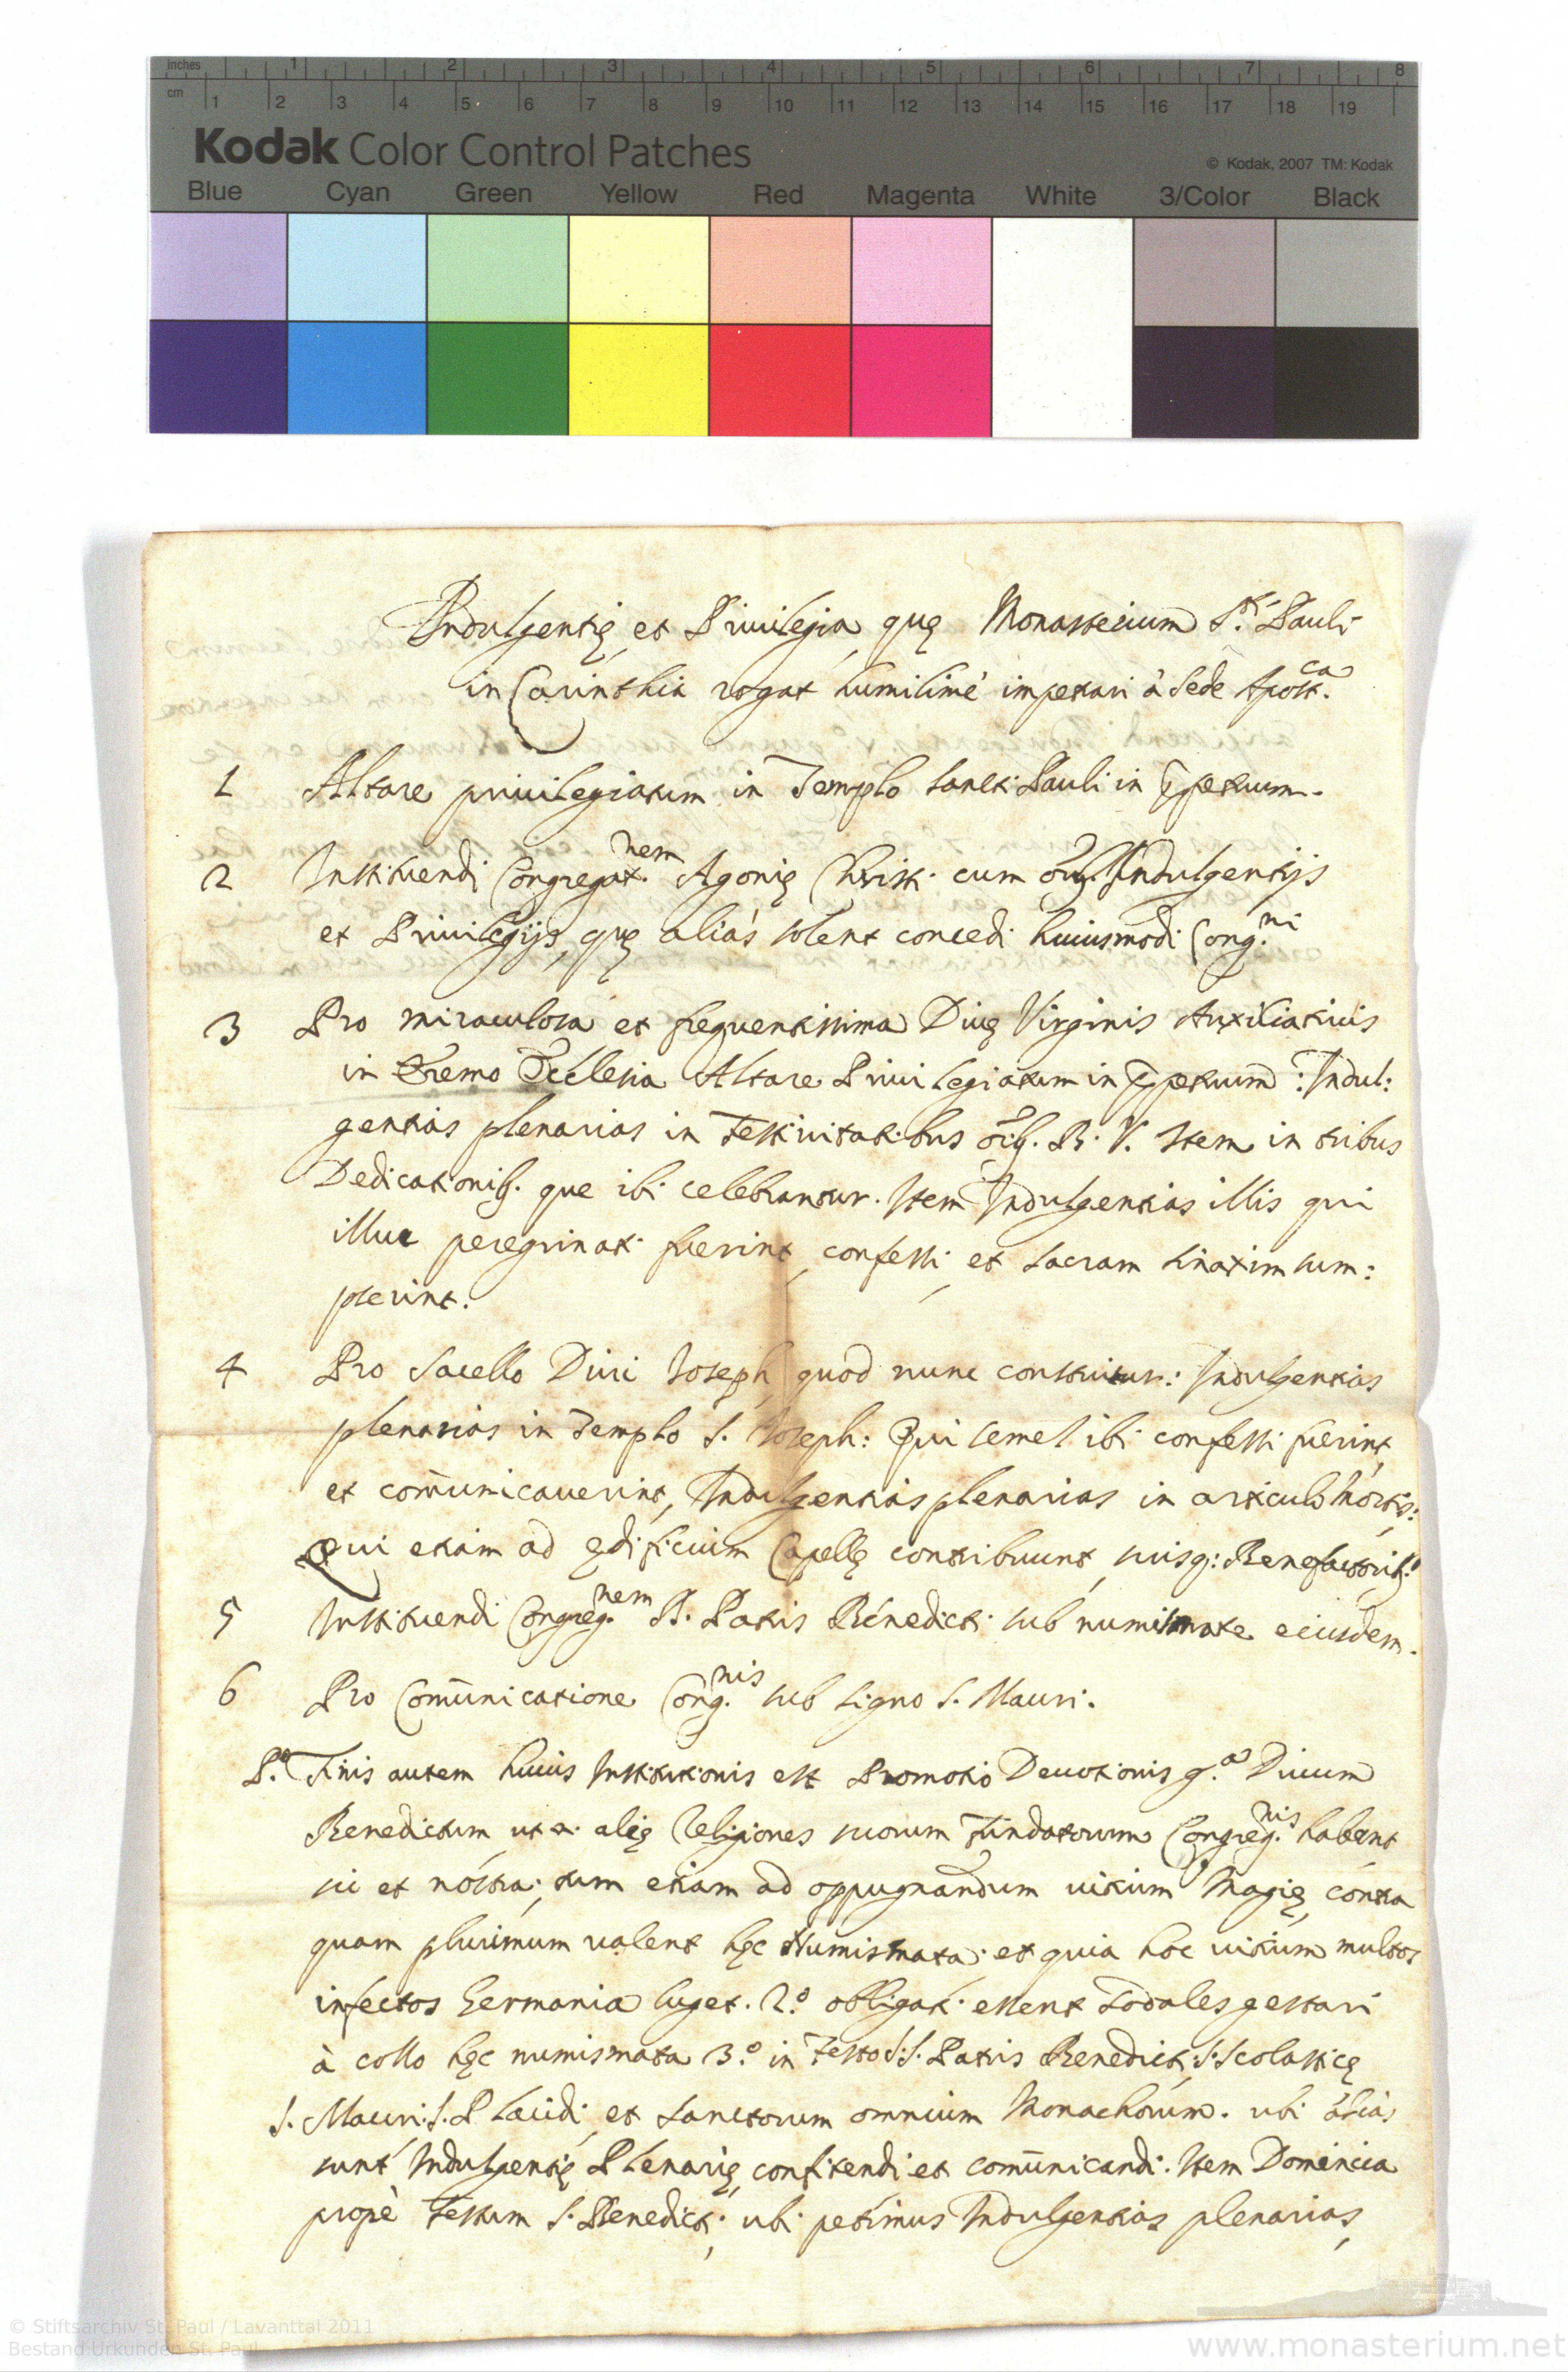 inches 1 2 3 4 5 6 7 8
cm 1 2 3 4 5 6 7 8 9 10 11 12 13 14 15 16 17 18 19
Kodak Color Control Patches
© Kodak, 2007 TM: Kodak
Blue Cyan Green Yellow Red Magenta White 3/Color Black
Indulgentię et Priuilegia, quę Monasterium S.ti Pauli
in Carinthia rogat humilimè impetrari à Sede Apost.ca
1 Altare priuilegiatum in Templo Sancti Pauli in Perpetuum.
2 Instituendi Congregat.nem Agonię Christi cum Indulgentijs
et Priuilegijs, quę aliàs solent concedi huiusmodi Cong.ni
3 Pro miraculosa et frequentissima Diuę Virginis Auxiliatricis
in Eremo Ecclesia Altare Priuilegiatum in Perpetuum: Indul:
gentias plenarias in Festiuitatibus oīb. B. V. Item in tribus
Dedicationib. que ibi celebrantur. Item Indulgentias illis qui
illuc peregrinati fuerint, confessi, et sacram sinaxim sum:
pserint.
4 Pro Sacello Diui Ioseph, quod nunc construitur: Indulgentias
plenarias in Templo S. Ioseph: Qui semel ibi confessi fuerint,
et com̄unicauerint, Indulgentias plenarias in articulo mortis:
Qui etiam ad ędificium Capellę contribuunt, suisq: Benefactorib.
5 Instituendi Congreg.nem S. Patris Benedicti sub numismate eiusdem.
6 Pro Com̄unicatione Cong.nis sub signo S. Mauri.
P.o Finis autem huius Institutionis est Promotio Deuotionis g.a Diuum
Benedictum ut alię Religiones suorum Fundatorum Congreg.nis habent
sic et nostra: tum etiam ad oppugnandum uitium Magię, contra
quam plurimum ualent hęc Numismata: et quia hoc uitium multos
infectos Germania luget. 2.o obligati essent Sodales gestari
à collo hęc numismata 3.o in Festo S.S. Patris Benedicti, S. Scolasticę
S. Mauri. S. Placidi, et Sanctorum omnium Monachorum. ubi aliàs
sunt Indulgentię Plenarię, confitendi et com̄unicandi. Item Dominica
propè Festum S. Benedicti, ubi petimus Indulgentias plenarias,
© Stiftsarchiv St. Paul / Lavanttal 2011
Bestand Urkunden St. Paul
www.monasterium.net